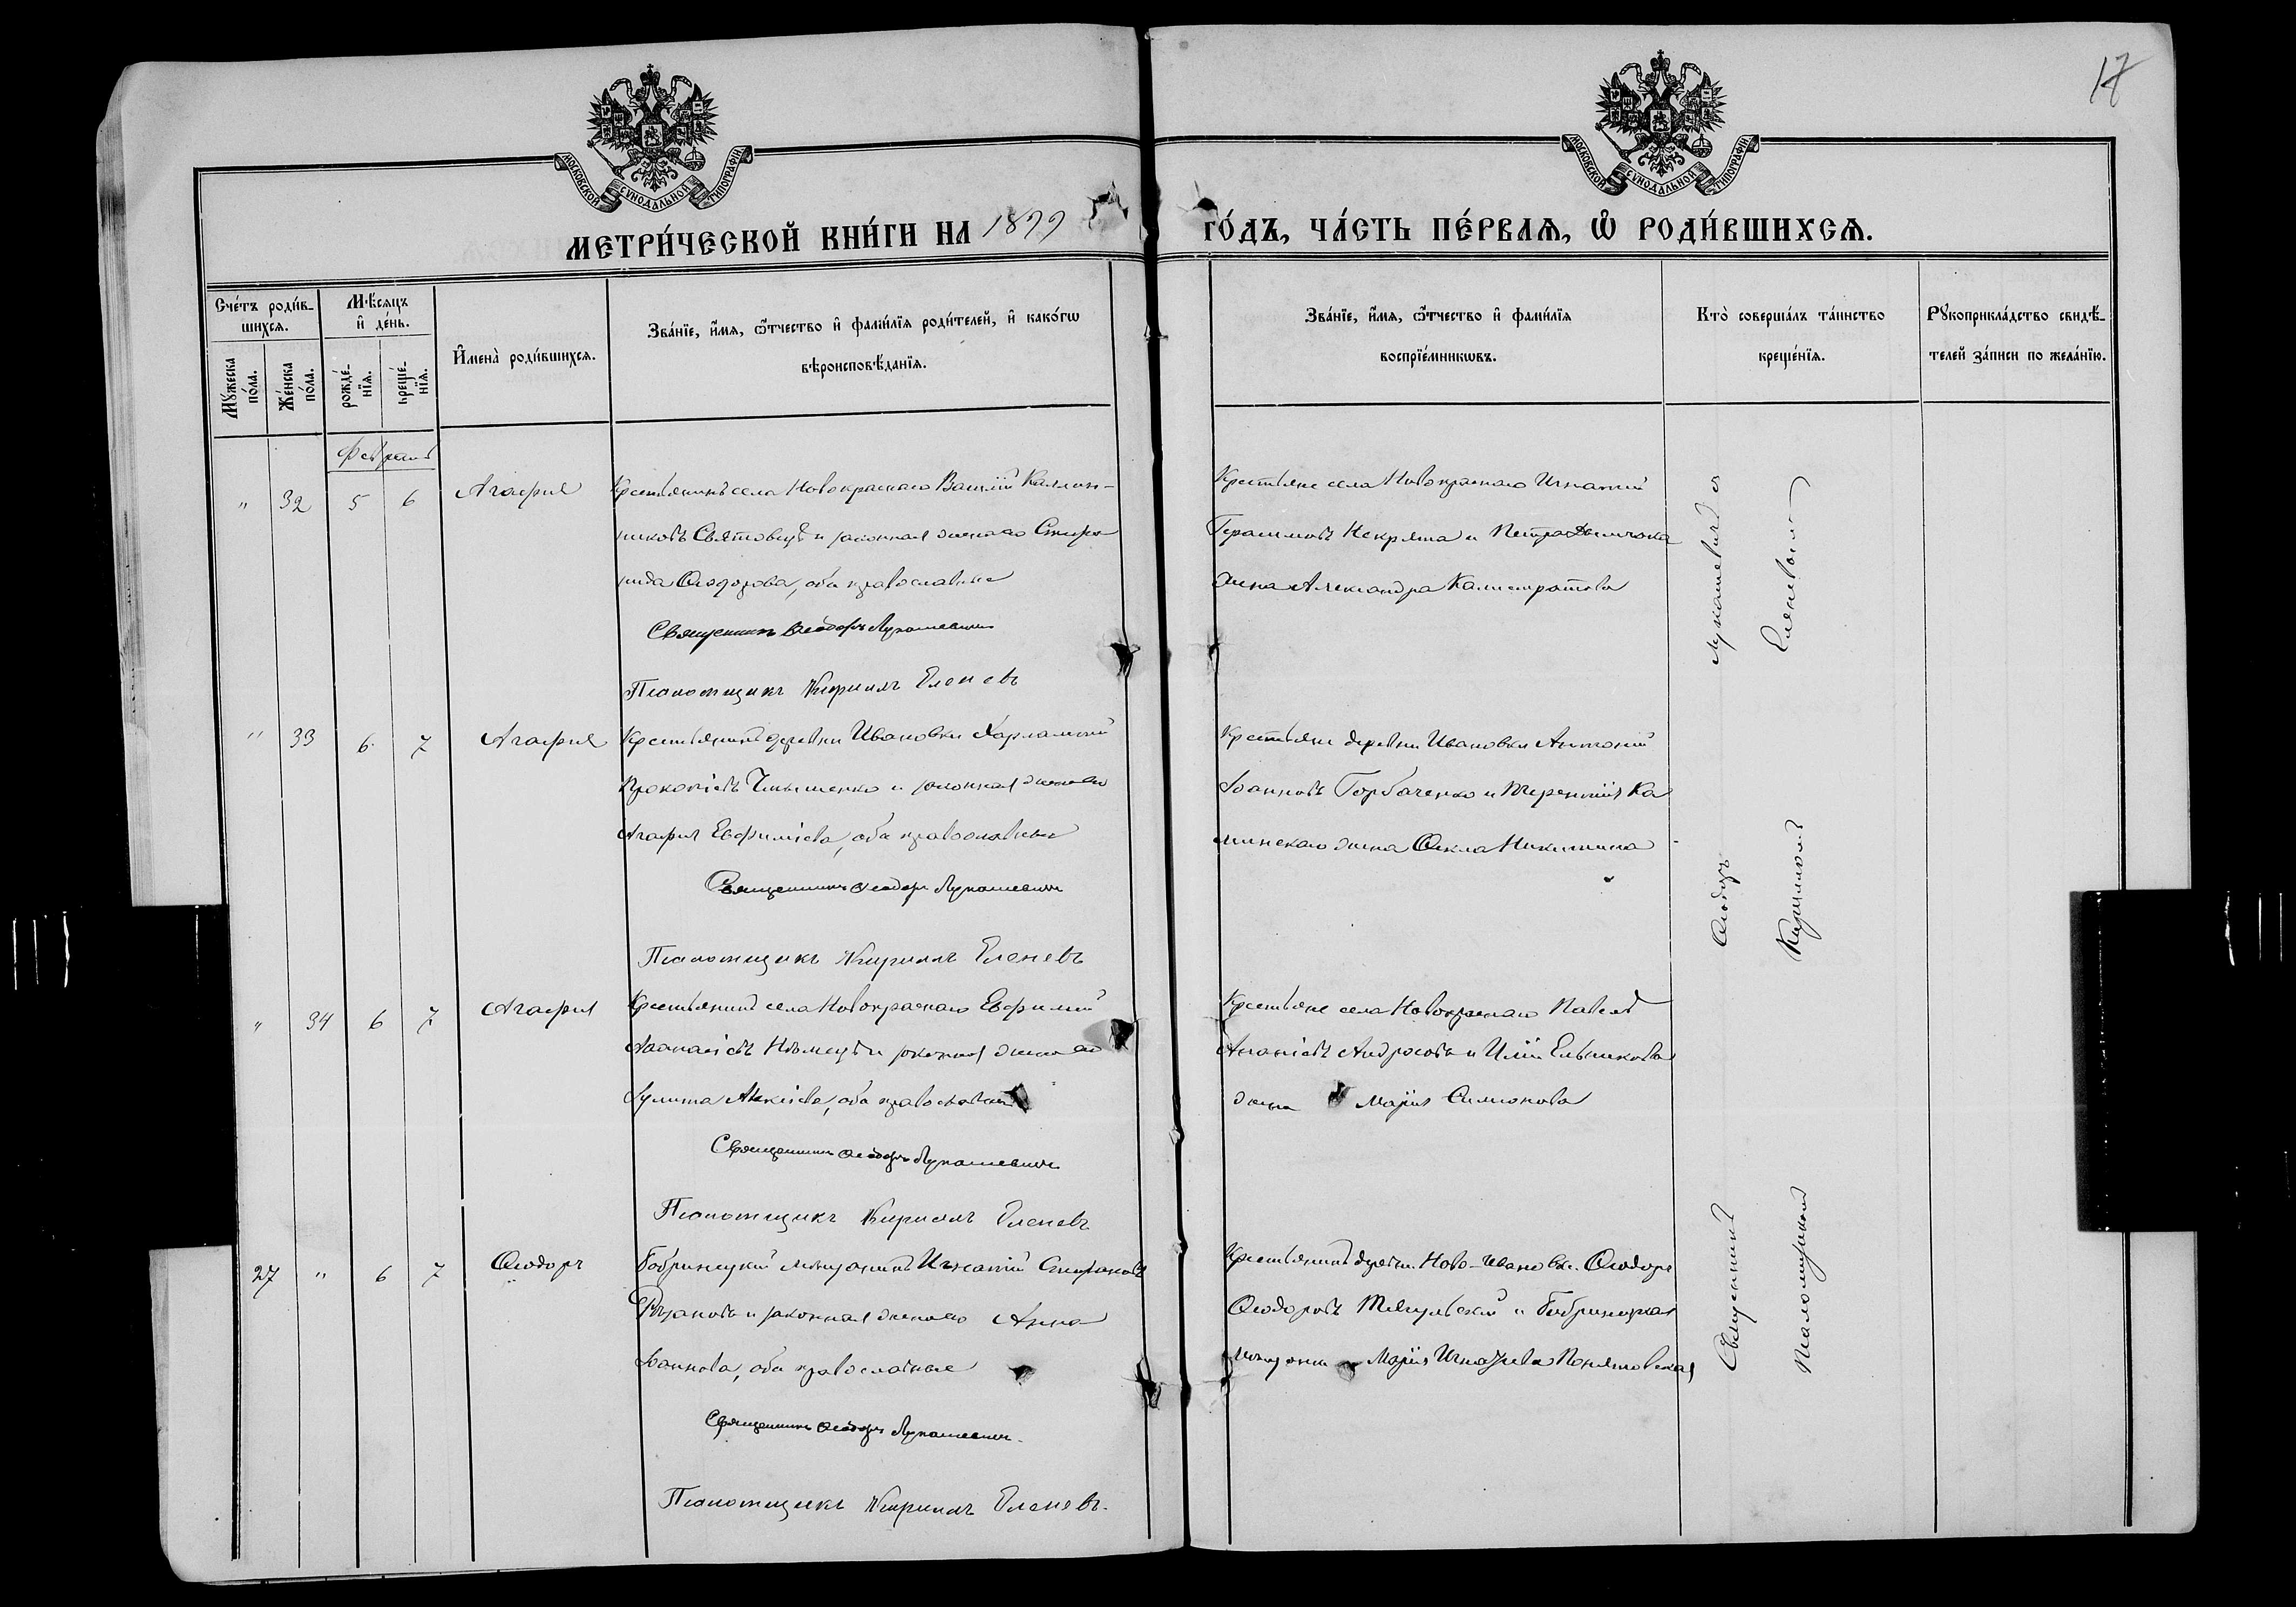 17
МОСКОВСКОЙ СѴНОДАЛЬНОЙ ТИПОГРАФІИ
МОСКОВСКОЙ СѴНОДАЛЬНОЙ ТИПОГРАФІИ
МЕТРИ́ЧЕСКОЙ КНИ́ГИ НА 1899
ГО́ДЪ, ЧА́СТЬ ПЕ́РВАѦ, Ѽ РОДИ́ВШИХСѦ.
Сче́тъ роди́в-
шихсѧ.
Мꙋ́жеска по́ла.
Же́нска по́ла.
Мѣ́сѧцъ
и҆ де́нь.
рожде́-
нїѧ.
креще́-
нїѧ.
И҆мена̀ роди́вшихсѧ.
Зва́нїе, и҆́мѧ, ѻ҆́тчество и҆ фами́лїѧ роди́телей, и҆ како́гѡ
вѣроисповѣ́данїѧ.
Зва́нїе, и҆́мѧ, ѻ҆́тчество и҆ фами́лїѧ
воспрїе́мникѡвъ.
Кто̀ соверша́лъ та́инство
креще́нїѧ.
Рꙋкоприкла́дство свидѣ́-
телей за́писи по жела́нїю.
Февраль
" 32 5 6 Агафія
Крестьянинъ села Новокраснаго Василій Каллин-
никовъ Святовецъ и законная жена его Спири-
рида Ѳеодорова, оба православные
Священникъ Ѳеодоръ Лукашевичъ
Псаломщикъ Кириллъ Еленевъ
Крестьяне села Новокраснаго Игнатій
Герасимовъ Некряча и Петра
жена Александра Калистратова
" 33 6 7 Агафія
Крестьянинъ деревни Ивановки Харлампій
Прокопіевъ и законная жена его
Агафія Евфиміева, оба православные
Священникъ Ѳеодоръ Лукашевичъ
Псаломщикъ Кириллъ Еленевъ
Крестьяне деревни Ивановки Антоній
Іоанновъ Горбаченко и Терентія Ка
минскаго жена Ѳекла Никитина
" 34 6 7 Агафія
Крестьянинъ села Новокраснаго Евфимій
Аѳанасіевъ Нѣмецъ и законная жена его
Іулита Алексіева, оба православные
Священникъ Ѳеодоръ Лукашевичъ
Псаломщикъ Кириллъ Еленевъ
Крестьяне села Новокраснаго Павелъ
Ананіевъ Андросовъ и Иліи Ельникова
жена Марія Симонова
27 " 6 7 Ѳеодоръ
Бобринецкій мѣщанинъ Игнатій
Рѣзановъ и законная жена его Анна
Іоаннова, оба православные
Священникъ Ѳеодоръ Лукашевичъ
Псаломщикъ Кириллъ Еленевъ.
Крестьянинъ деревни Ново-Ивановки Ѳеодоръ
Ѳеодоровъ и Бобринецкая
мѣщанка Марія Игнатьева Понятовская
Священникъ Ѳеодоръ Лукашевичъ съ
Псаломщикомъ Кирилломъ Еленевымъ